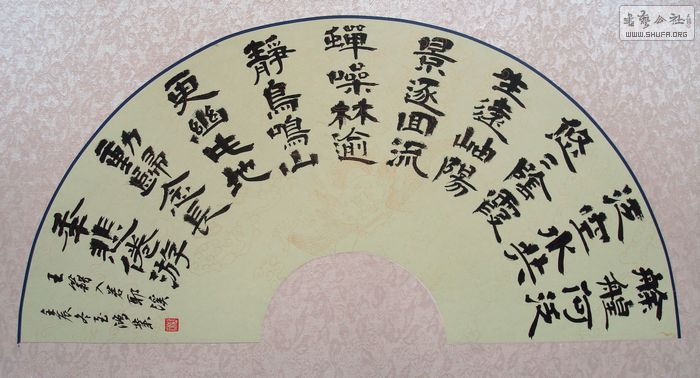 艅艎何泛
泛空水共
悠々陰霞
生遠岫陽
景逐回流
蟬噪林逾
靜鳥鳴山
更幽此地
動歸念長
年悲倦游
王籍入若耶溪
壬辰冬
书艺公社
WWW.SHUFA.ORG